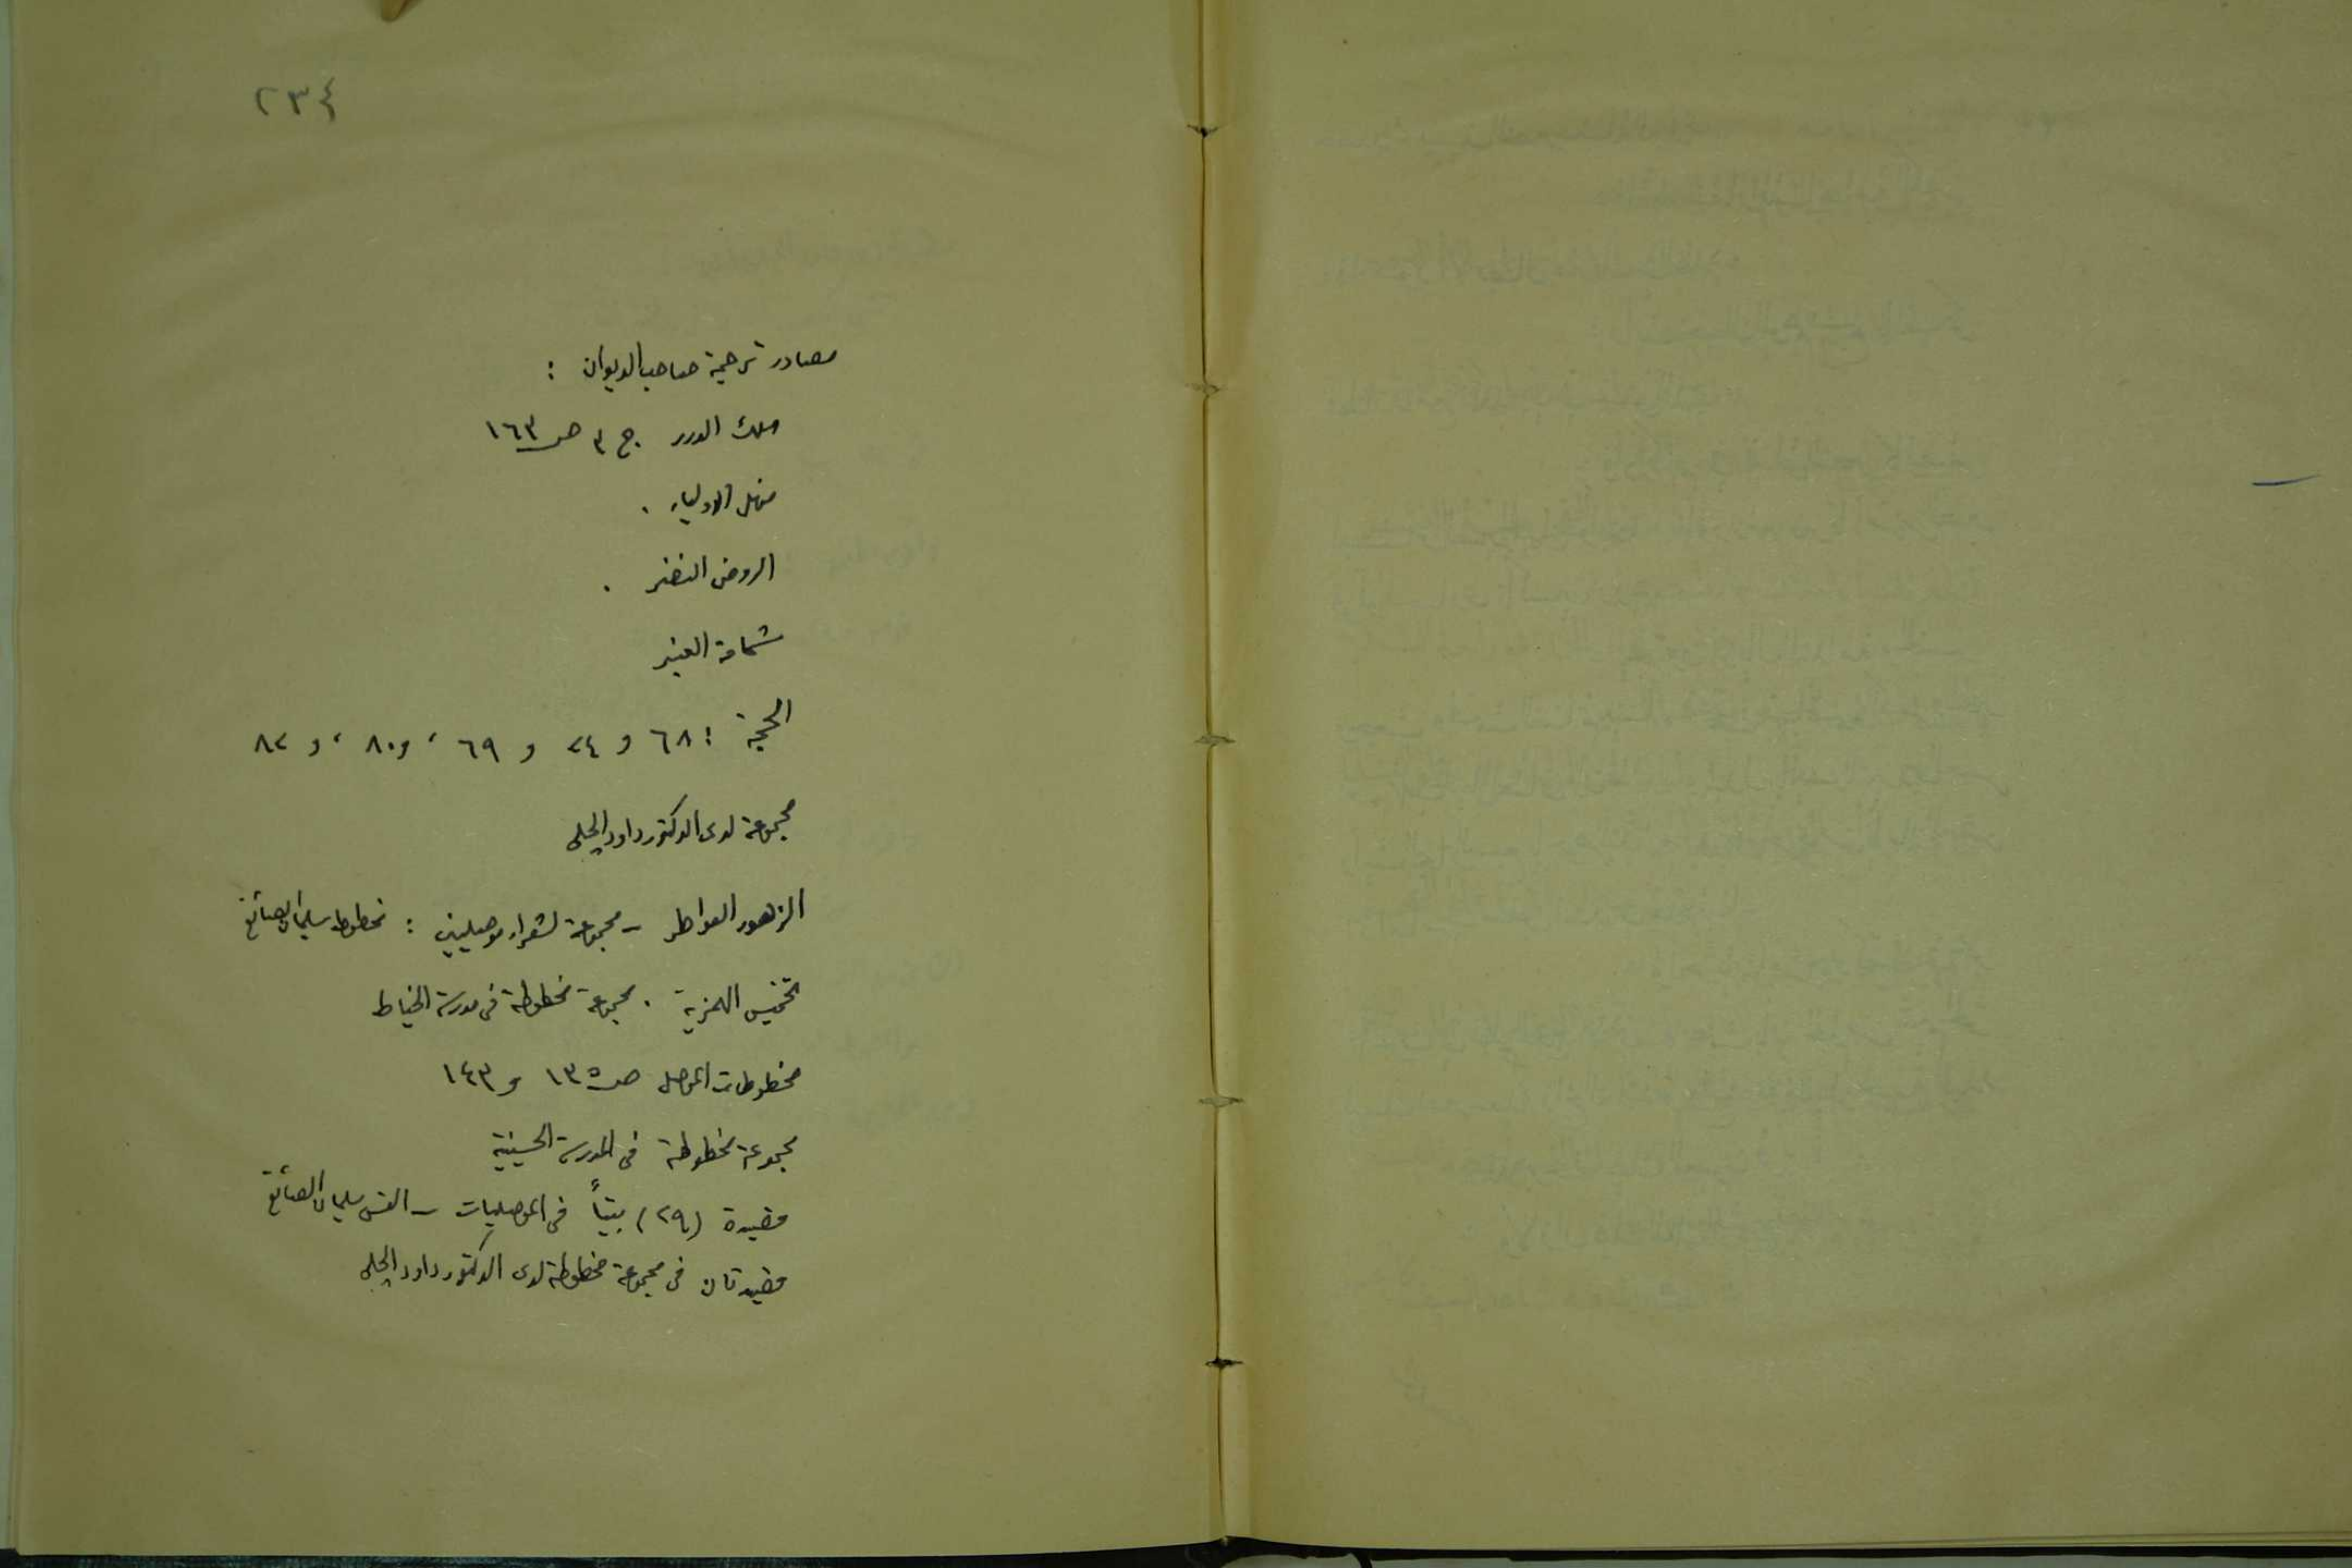 ٢٣٤
مصادر ترجمة صاحب الديوان :
سلك الدرر ج ٣ ص ١٦٣
منهل الاولياء .
الروض النضر .
شمامة العنبر
الحجة : ٦٨ و ٢٤ و ٦٩ ، و ٨٠ ، و ٨٢
مجموعة لدى الدكتور داود الچلبي
الزهور العواطر - مجموعة لشعراء موصليين : مخطوط سليمان الصائغ
تخميس الهمزية . مجموعة مخطوطة في مدرسة الخياط
مخطوطات الموصل ص ١٣٥ و ١٤٣
مجموعة مخطوطة في المدرسة الحسينية
قصيدة (٢٩) بيتاً في الموصليات - القس سليمان الصائغ
قصيدتان في مجموعة مخطوطة لدى الدكتور داود الچلبي